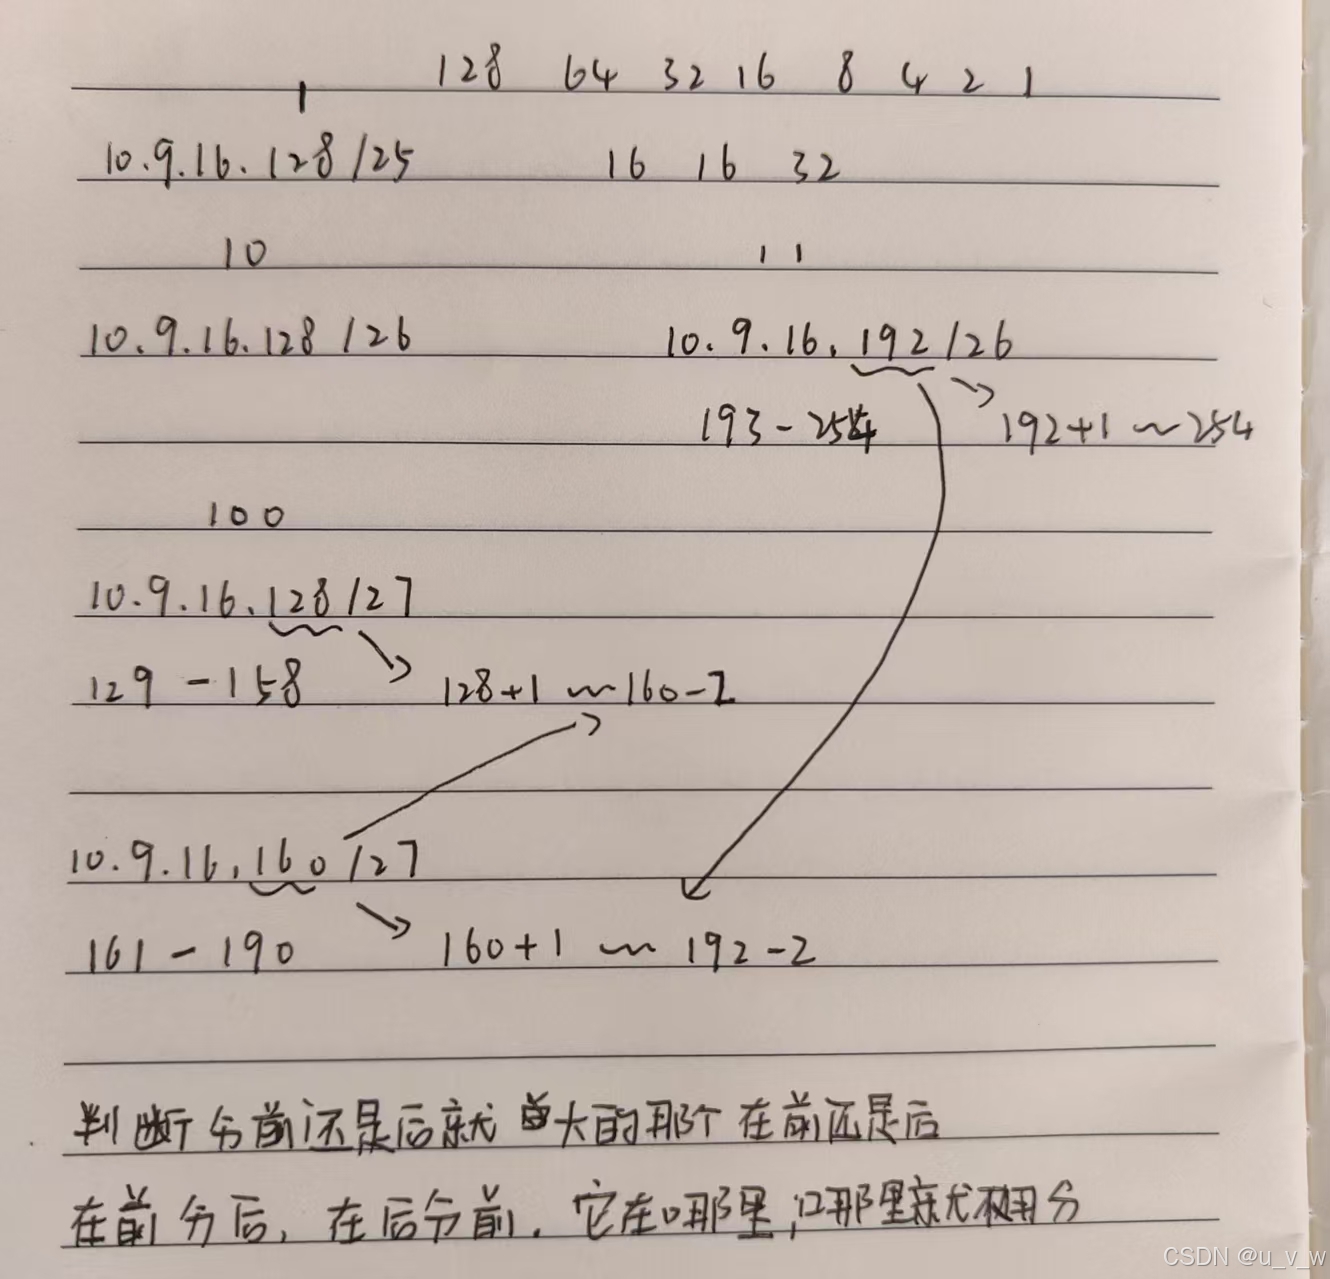 128 64 32 16 8 4 2 1
1
10.9.16.128/25 16 16 32
10 11
10.9.16.128/26 10.9.16.192/26
193-254 192+1~254
100
10.9.16.128/27
129-158 128+1~160-2
10.9.16.160/27
161-190 160+1~192-2
判断分前还是后就 大的那个在前还是后
在前分后，在后分前．它在哪里，哪里就不用分
CSDN @u_v_w